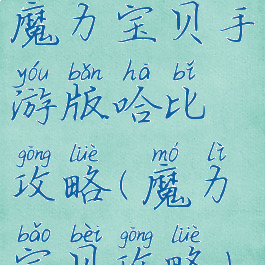 魔力宝贝手
yóu bǎn hā bǐ
游版哈比
gōng lüè mó lì
攻略(魔力
bǎo bèi gōng lüè
宝贝攻略)